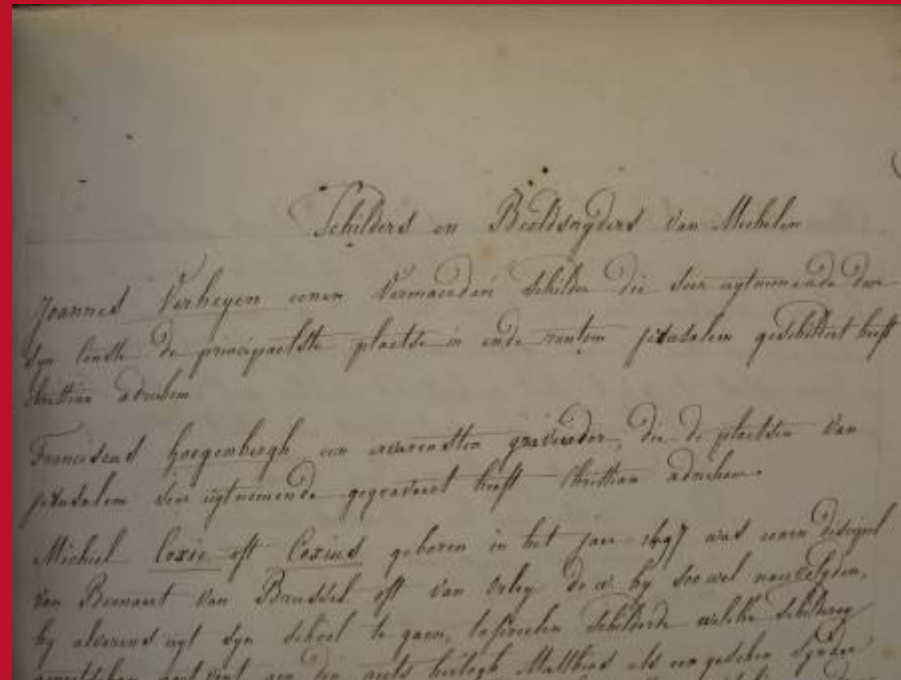 Schilders en Beeldsnyders van Mechelen
Joannes Verheyen eenen vermaerden schilder die seer uytnemende door
syn conste de principaelste plaetse in ende rontom jerusalem geschildert heeft
Christian adrichem
Franciscus hoogenbergh een graveerder, die de plaetsen van
jerusalem seer uytnemende gegraveert heeft Christian adrichem.
Michiel Coxie oft Coxius geboren in het jaer 1497 was eenen discipel
van Bernaert van Brussel oft van orley de w. hy soo wel
hy alvorens uyt syn school te gaen, schilderde welke schilderey
aen den heiligh Matthias als